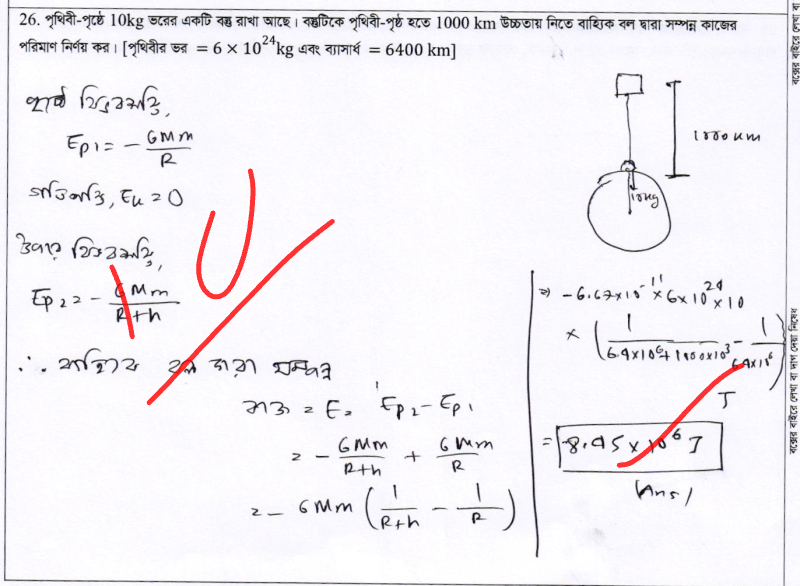 26. পৃথিবী-পৃষ্ঠে 10kg ভরের একটি বস্তু রাখা আছে। বস্তুটিকে পৃথিবী-পৃষ্ঠ হতে 1000 km উচ্চতায় নিতে বাহ্যিক বল দ্বারা সম্পন্ন কাজের
পরিমাণ নির্ণয় কর। [পৃথিবীর ভর = 6 × 10²⁴kg এবং ব্যাসার্ধ = 6400 km]
পৃষ্ঠে বিভবশক্তি,
Ep₁ = - GMm/R
গতিশক্তি, Ek = 0
উপরে বিভবশক্তি,
Ep₂ = - GMm/R+h
∴ বাহ্যিক বল দ্বারা সম্পন্ন
কাজ = E = Ep₂ - Ep₁
= - GMm/R+h + GMm/R
= - GMm (1/R+h - 1/R)
1000km
10kg
⇒ -6.67×10⁻¹¹×6×10²⁴×10
× (1/6.4×10⁶+1000×10³ - 1/6.4×10⁶)
J
= 8.45×10⁶ J
(Ans)
বক্সের বাইরে লেখা বা দাগ দেয়া নিষেধ